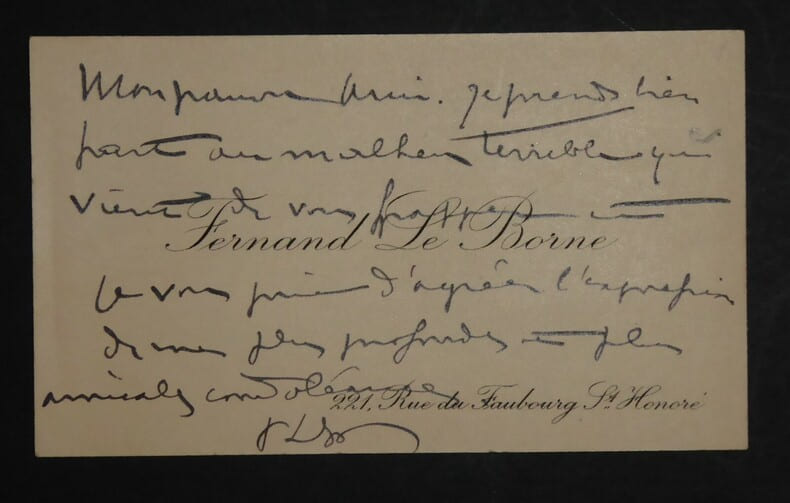 Mon pauvre Ami. Je prends bien
part au malheur terrible qui
vient de vous frapper et
Fernand Le Borne
je vous prie d'agréer l'expression
de mes plus profondes et plus
amicales condoléances
221, Rue du Faubourg St Honoré